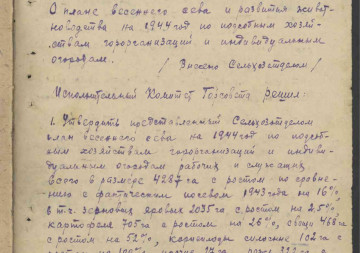 О плане весеннего сева и развитья живот-
новодства на 1944 год по подсобным хозяй-
ствам горорганизаций и индивидуальным
огородам.
/Внесено Сельхозотделом/
Исполнительный Комитет Горсовета решил:
1. Утвердить представленный Сельхозотделом
план весеннего сева на 1944 год по подсоб-
ным хозяйствам горорганизаций и индиви-
дуальным огородам рабочих и служащих
всего в размере 4287 га с ростом по сравне-
нию с фактическим посевом 1943 года на 16%,
в т.ч. зерновых яровых 2035 га с ростом на 25%
картофеля 705 га с ростом на 26%, овощи 466 га
с ростом на 52%, корнеплоды силосные 102 га с